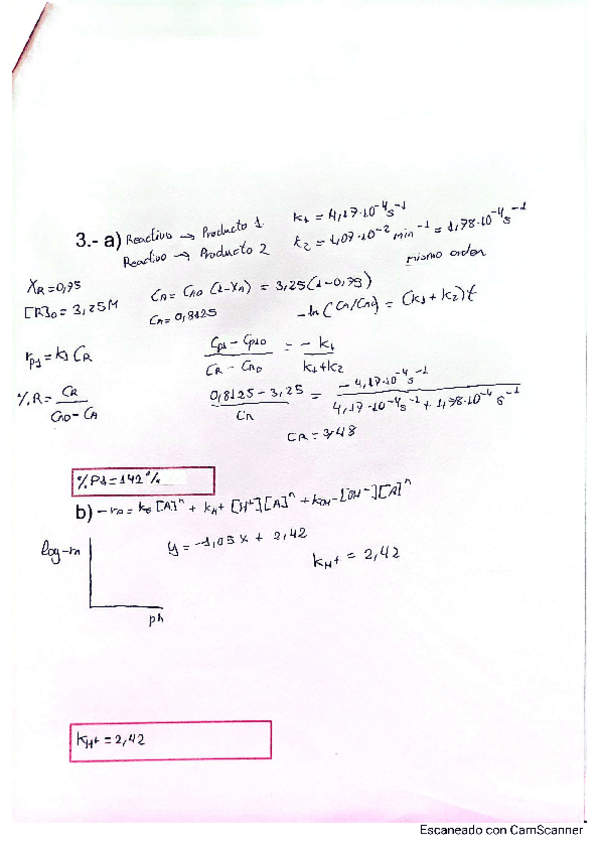 3.- a) Reactivo → Producto 1 k1 = 4,17·10⁻⁴ s⁻¹
Reactivo → Producto 2 k2 = 1,07·10⁻² min⁻¹ = 1,78·10⁻⁴ s⁻¹
mismo orden
XR = 0,75 CR = CR0 (1-XR) = 3,25(1-0,75)
[R]0 = 3,25M CR = 0,8125 -ln(CR/CR0) = (k1 + k2)t
rp1 = k1 CR (Cp1 - Cp10)/(CR - CR0) = - k1/(k1+k2)
%R = CR/(CA0 - CA) (0,8125 - 3,25)/CR = -4,17·10⁻⁴ s⁻¹/(4,17·10⁻⁴ s⁻¹ + 1,78·10⁻⁴ s⁻¹)
CR = 3,48
%P1 = 142%
b) -ra = k0 [A]ⁿ + kH+ [H+][A]ⁿ + kOH-[OH-][A]ⁿ
log-ra y = -1,05x + 2,42
kH+ = 2,42
ph
kH+ = 2,42
Escaneado con CamScanner